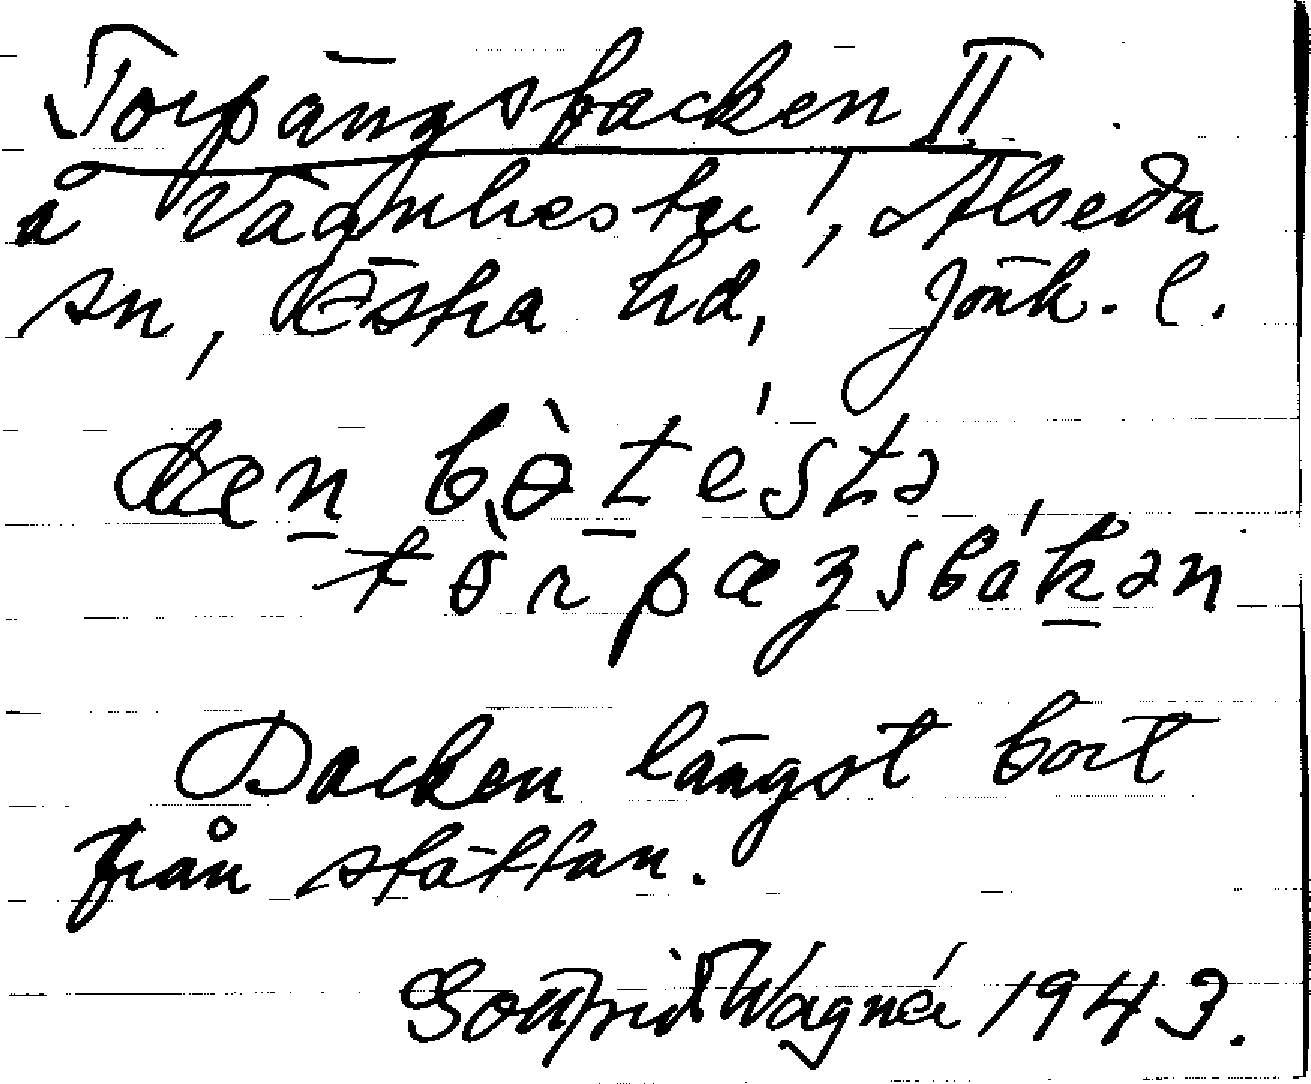 Torpängsbacken II
å Vägnhester, Alseda
sn, Östra hd, Jönk. l.
den bò̱rtésta
tɵ̀rpæŋsbákən
Backen längst bort
från stättan.
Gottfrid Wagnér 1943.